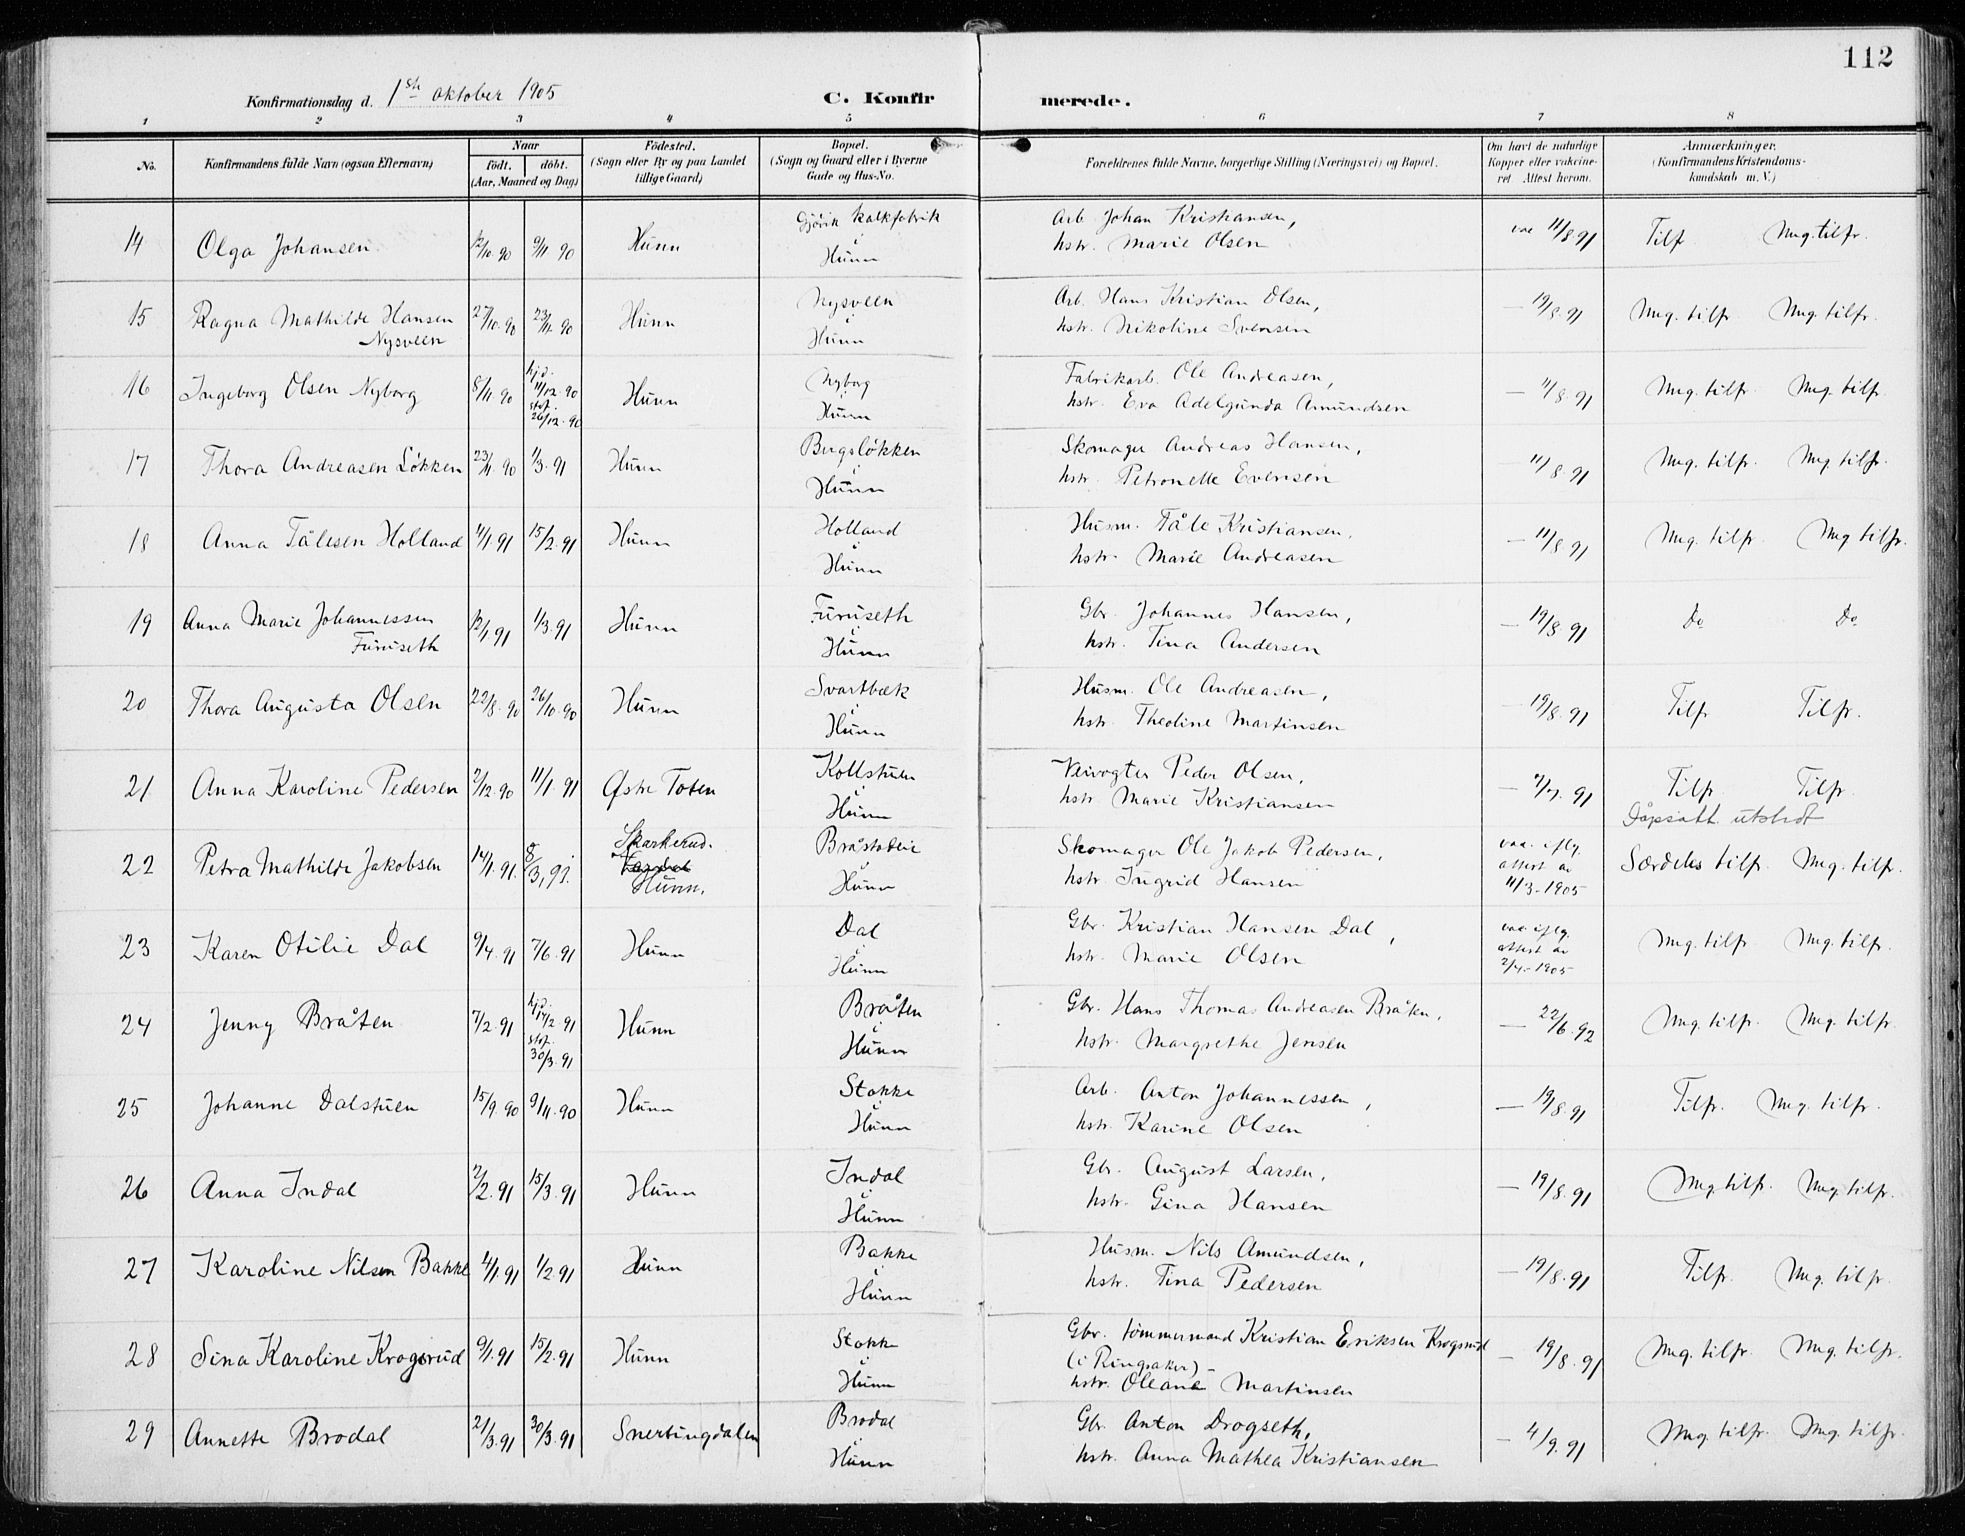 112
Konfirmationsdag d. 1ste oktober 1905
C. Konfirmerede.
1 2 3 4 5 6 7 8
No. Konfirmandens fulde Navn (ogsaa Efternavn) Naar født. døbt. (Aar, Maaned og Dag) Fødested. (Sogn eller By og paa Landet tillige Gaard) Bopæl. (Sogn og Gaard eller i Byerne Gade og Hus-No. Forældrenes fulde Navne, borgerlige Stilling (Næringsvei) og Bopæl. Om havt de naturlige Kopper eller vaccineret. Attest herom. Anmærkninger. (Konfirmandens Kristendomskundskab m. V.)
14 Olga Johansen 12/10.90 9/11.90 Hunn Gjövik kalkfabrik i Hunn Arb. Johan Kristiansen, hstr. Marie Olsen vac 11/8.91 Tilf Mg. tilfr.
15 Ragna Mathilde Hansen Nysveen 27/10.90 23/11.90 Hunn Nysveen i Hunn Arb. Hans Kristian Olsen, hstr. Nikoline Svensen — 19/8.91 Mg. tilfr. Mg. tilfr.
16 Ingeborg Olsen Nyborg 8/11.90 hj.d. 11/12.90 stf. 26/12.90 Hunn Nyborg i Hunn Fabrikarb. Ole Andreasen, hstr. Eva Adelgunda Amundsen — 11/8.91 Mg. tilfr. Mg. tilfr.
17 Thora Andreasen Løkken 23/11.90 1/3.91 Hunn Bergsløkken i Hunn Skomager Andreas Hansen, hstr. Petronelle Evensen — 11/8.91 Mg. tilfr. Mg. tilfr.
18 Anna Tålesen Holland 4/1.91 15/2.91 Hunn Holland i Hunn Husm. Tåle Kristiansen, hstr. Marie Andreasen — 11/8.91 Mg. tilfr. Mg tilfr.
19 Anna Marie Johannessen Furuseth 12/1.91 1/3.91 Hunn Furuseth i Hunn Gbr. Johannes Hansen, hstr. Tina Andersen — 19/8.91 Do Do
20 Thora Augusta Olsen 22/8.90 26/10.90 Hunn Svartbæk i Hunn Husm. Ole Andreasen, hstr. Theoline Martinsen — 19/8.91 Tilfr Tilfr.
21 Anna Karoline Pedersen 2/12.90 11/1.91 Østre Toten Kollstuen i Hunn Veivogter Peder Olsen, hstr. Marie Kristiansen Tilfr. Tilfr.
Dåpsatt. utstedt
22 Petra Mathilde Jakobsen 14/1.91. 8/3.91. Skarkerud. Hunn. Bråstabeie i Hunn Skomager Ole Jakob Pedersen, hstr. Ingrid Hansen vac. iflg. attest av 11/3-1905 Særdeles tilfr. Mg. tilfr.
23 Karen Otilie Dal 9/4.91 7/6.91 Hunn Dal i Hunn Gbr. Kristian Hansen Dal, hstr. Marie Olsen vac. iflg. attest av 2/4-1905 Mg. tilfr Mg. tilfr.
24 Jenny Bråten 7/2.91 hj.d. 17/2.91 stf. 30/3.91 Hunn Bråten i Hunn Gbr. Hans Thomas Andreasen Bråten, hstr. Margrethe Jensen — 22/6.92 Mg. tilfr. Mg. tilfr.
25 Johanne Dalstuen 15/9.90 9/11.90 Hunn Stokke i Hunn Arb. Anton Johannessen, hstr. Karine Olsen — 19/8.91 Tilfr. Mg. tilfr.
26 Anna Indal 2/2.91 15/3.91 Hunn Indal i Hunn Gbr. August Larsen, hstr. Gina Hansen — 19/8.91 Mg. tilfr. Mg. tilfr.
27 Karoline Nilsen Bakke 4/1.91 1/2.91 Hunn Bakke i Hunn Husm. Nils Amundsen, hstr. Tina Pedersen — 19/8.91 Tilfr. Mg. tilfr.
28 Sina Karoline Krogsrud 9/1.91 15/2.91 Hunn Stokke i Hunn Gbr. tømmermand Kristian Eriksen Krogsrud (i Ringsaker) — hstr. Oleane Martinsen — 19/8.91 Mg. tilfr. Mg. tilfr.
29 Annette Brodal 21/3.91 30/3.91 Snertingdalen Brodal i Hunn Gbr. Anton Drogseth, hstr. Anna Mathea Kristiansen — 4/9.91 Mg. tilfr. Mg. tilfr.